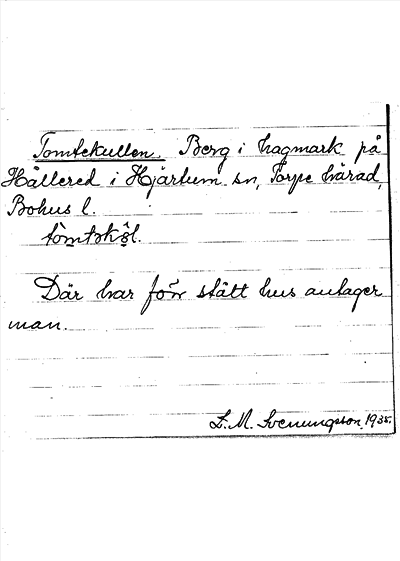 Tomtekullen. Berg i hagmark på
Hällered i Hjärtum sn, Torpe härad,
Bohus l.
tòmtəkə̂l.
Där har förr stått hus antager
man.
L. M. Svenungsson 1935.